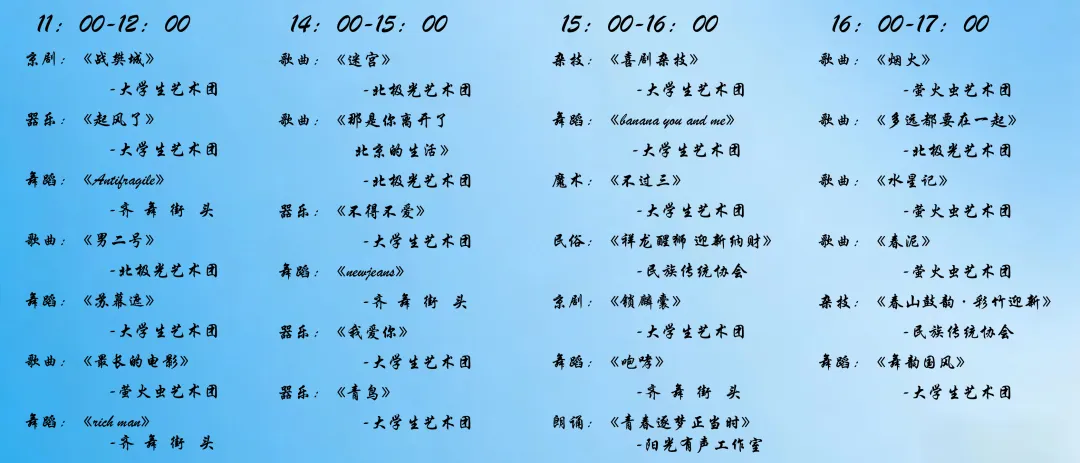 11：00-12：00
京剧：《战樊城》
-大学生艺术团
器乐：《起风了》
-大学生艺术团
舞蹈：《Antifragile》
-齐舞街头
歌曲：《男二号》
-北极光艺术团
舞蹈：《苏幕遮》
-大学生艺术团
歌曲：《最长的电影》
-萤火虫艺术团
舞蹈：《rich man》
-齐舞街头
14：00-15：00
歌曲：《迷宫》
-北极光艺术团
歌曲：《那是你离开了
北京的生活》
-北极光艺术团
器乐：《不得不爱》
-大学生艺术团
舞蹈：《newjeans》
-齐舞街头
器乐：《我爱你》
-大学生艺术团
器乐：《青鸟》
-大学生艺术团
15：00-16：00
杂技：《喜剧杂技》
-大学生艺术团
舞蹈：《banana you and me》
-大学生艺术团
魔术：《不过三》
-大学生艺术团
民俗：《祥龙醒狮 迎新纳财》
-民族传统协会
京剧：《锁麟囊》
-大学生艺术团
舞蹈：《咆哮》
-齐舞街头
朗诵：《青春逐梦正当时》
-阳光有声工作室
16：00-17：00
歌曲：《烟火》
-萤火虫艺术团
歌曲：《多远都要在一起》
-北极光艺术团
歌曲：《水星记》
-萤火虫艺术团
歌曲：《春泥》
-萤火虫艺术团
杂技：《春山鼓韵·彩竹迎新》
-民族传统协会
舞蹈：《舞韵国风》
-大学生艺术团